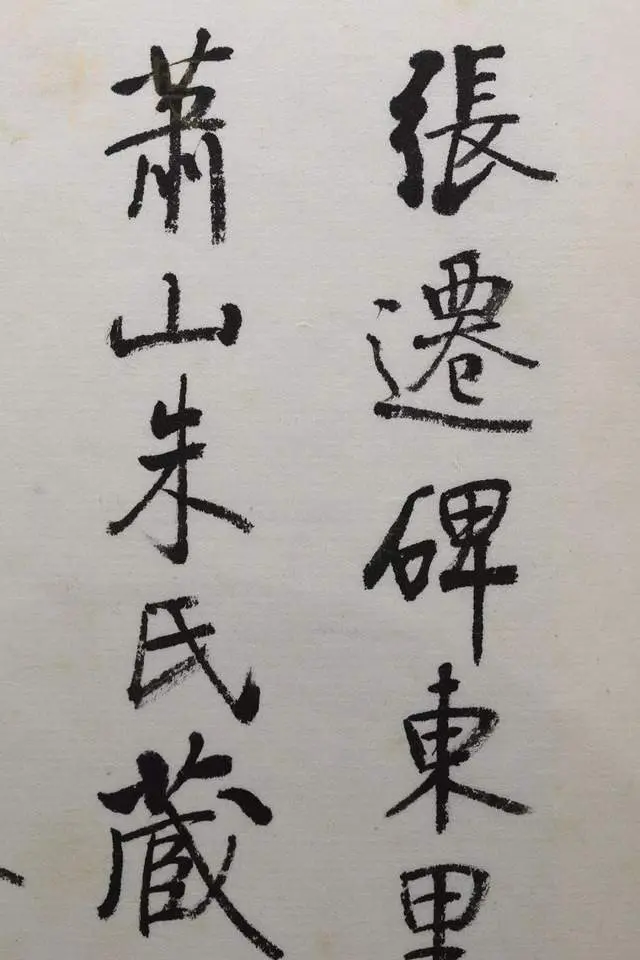 張遷碑東里
蕭山朱氏蔵